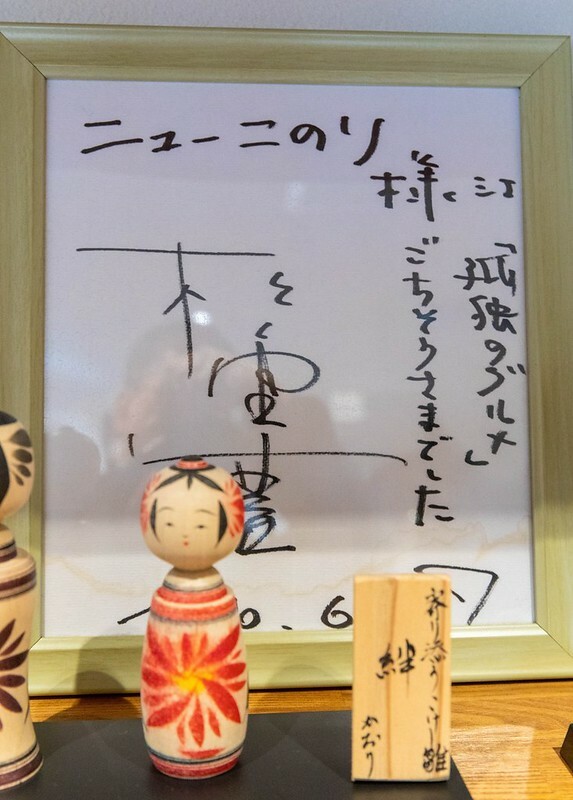 ニューこのり
様江
「孤独のグルメ」
ごちそうさまでした
松重豊
寄り添うこけし雛
絆
かおり